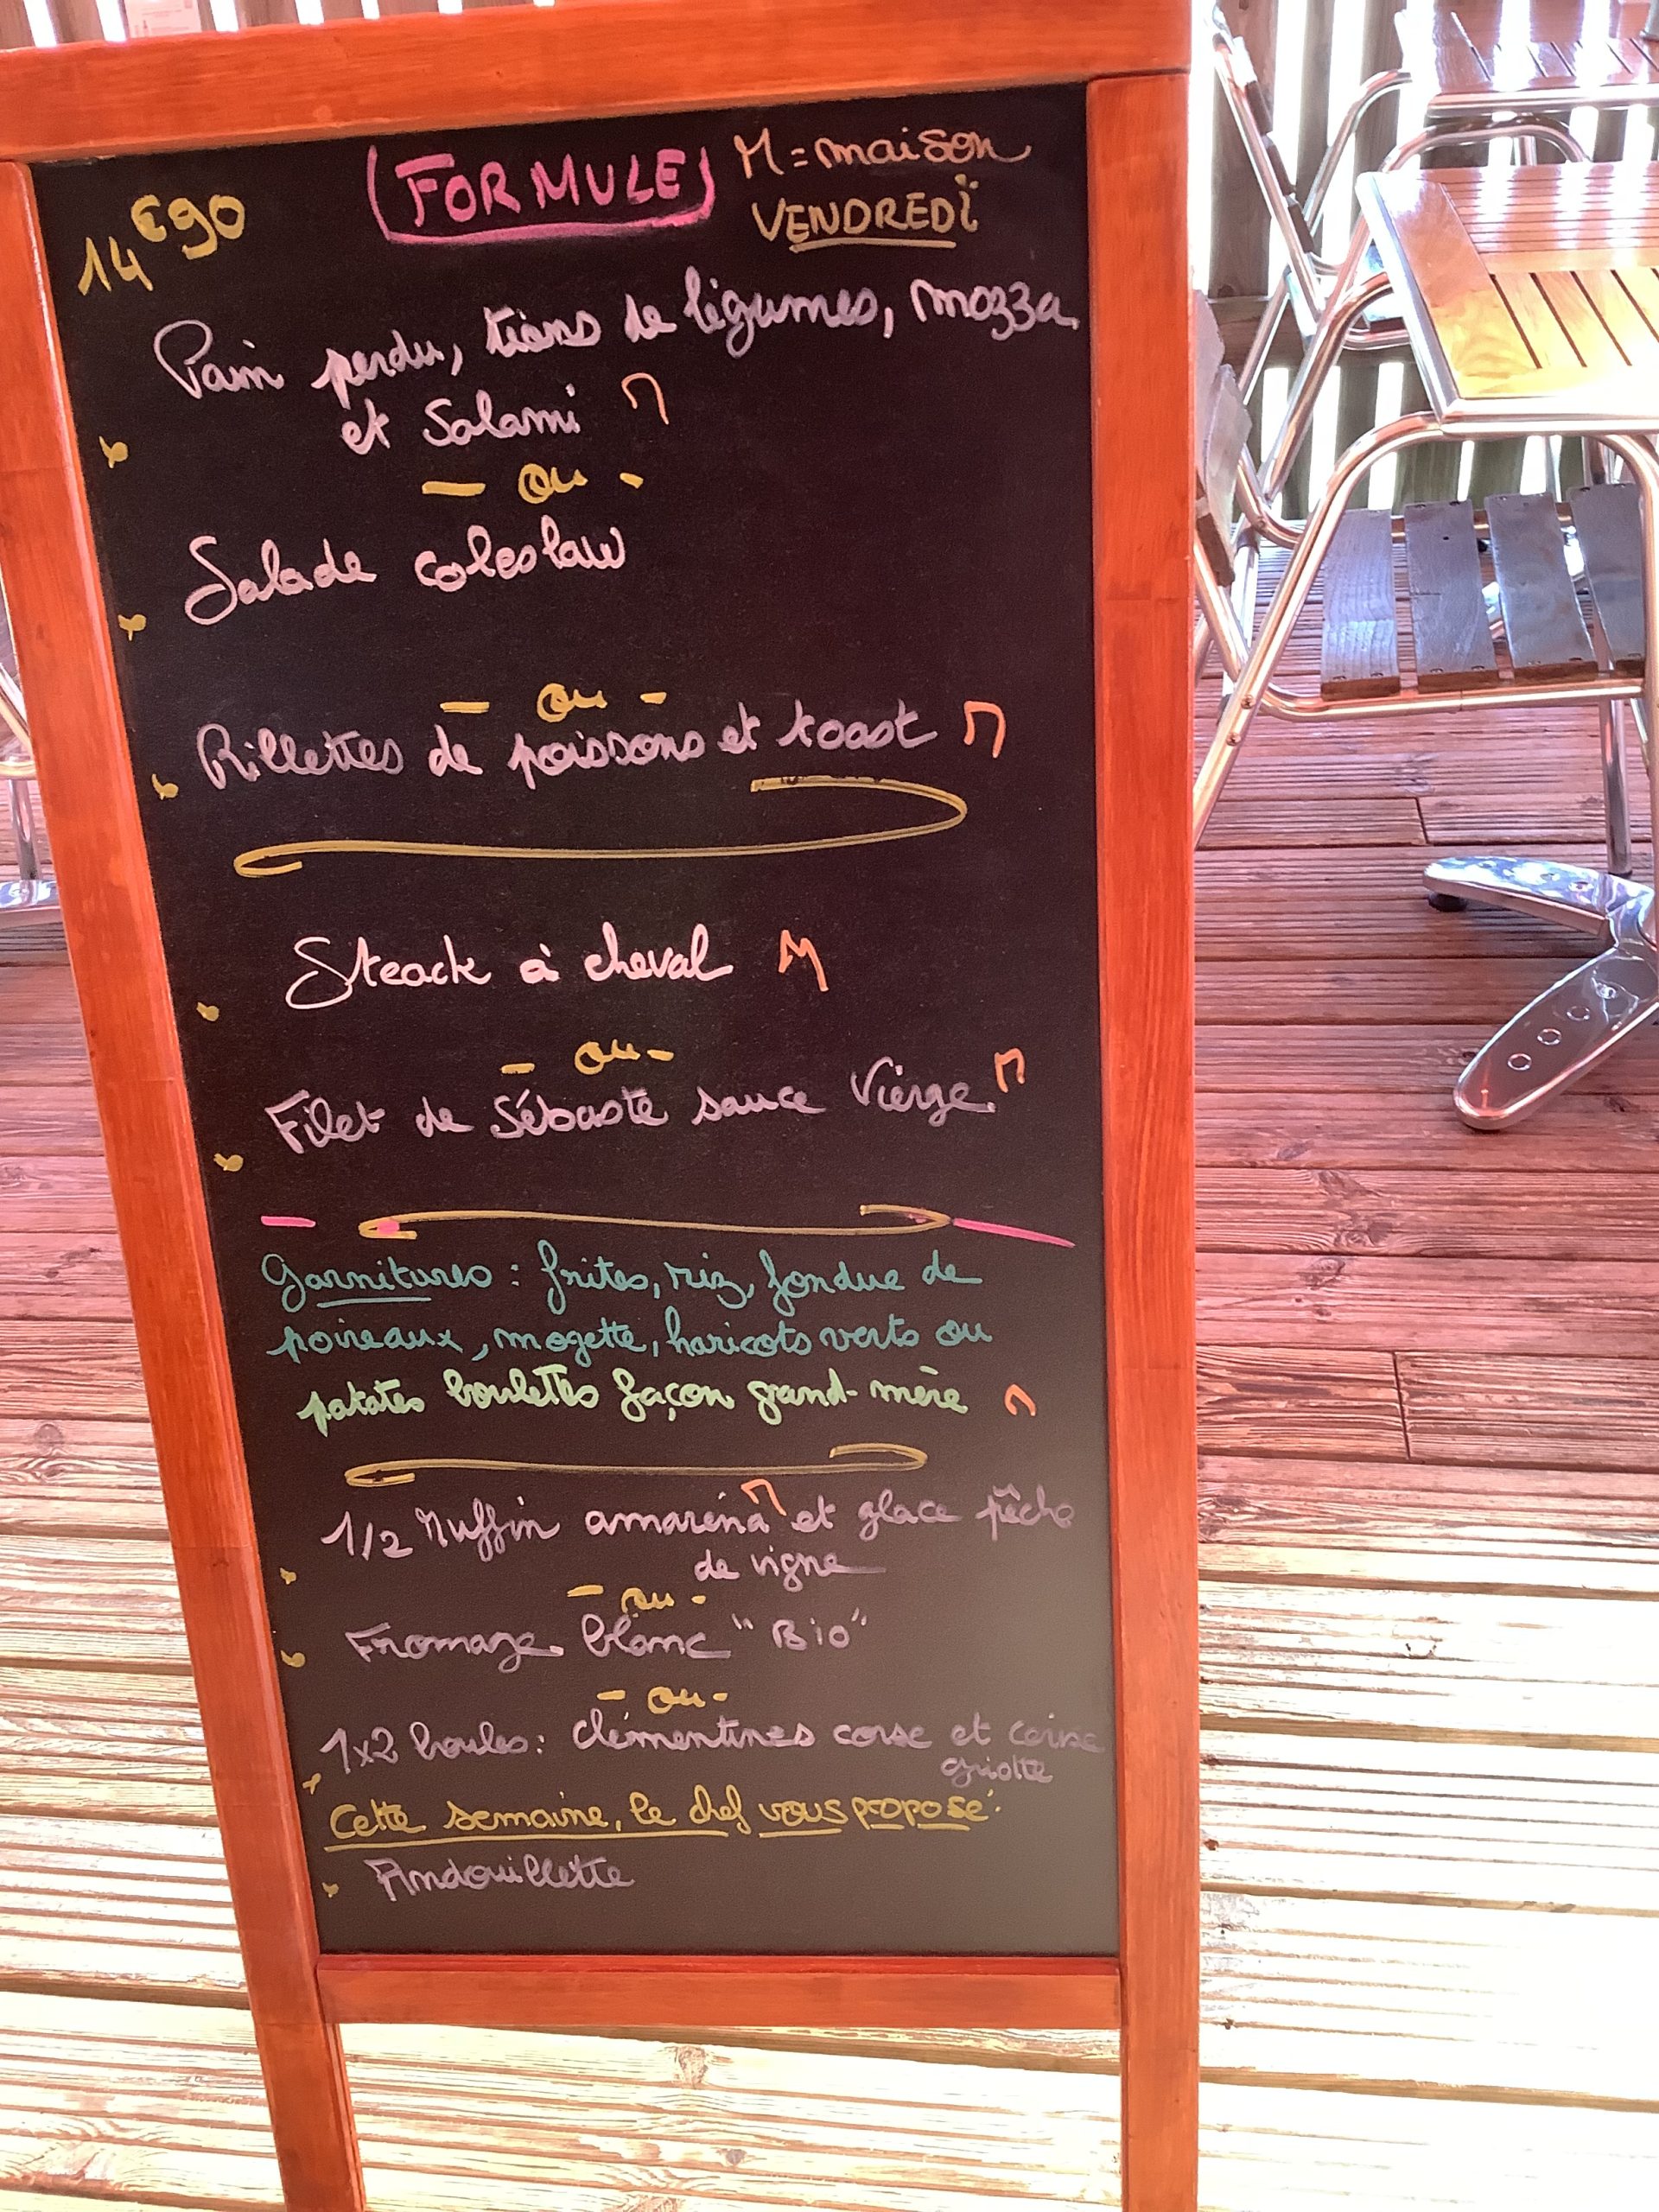 14€90
FORMULE
M = maison
VENDREDI
Pain perdu, tians de légumes, mozza
et Salami M
- ou -
Salade coleslaw
- ou -
Rillettes de poissons et toast M
Steack à cheval M
- ou -
Filet de Sébaste sauce Vierge M
Garnitures : frites, riz, fondue de
poireaux, mogette, haricots verts ou
patates boulettes façon grand-mère M
1/2 Muffin amaréna M et glace pêche
de vigne
- ou -
Fromage blanc "Bio"
- ou -
1x2 boules : clémentines corse et cerise
griotte
Cette semaine, le chef vous propose :
Andouillette